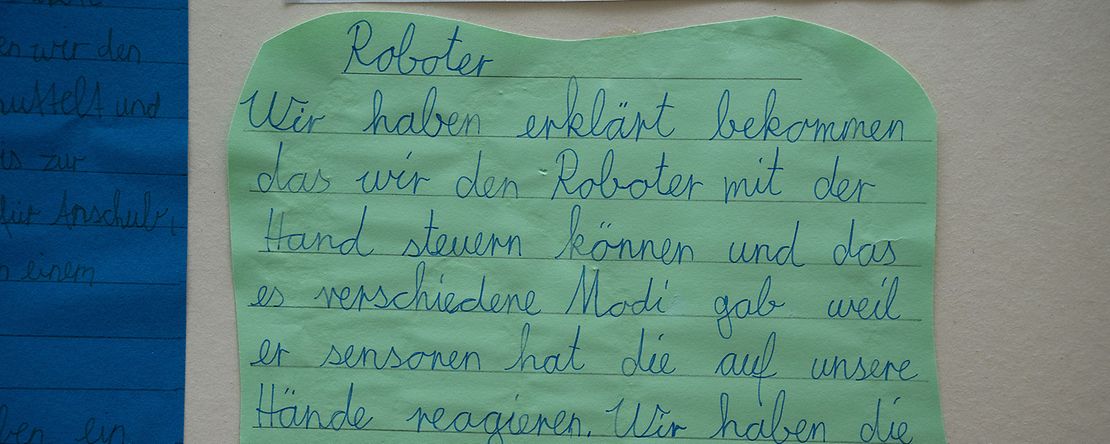 en wir den
und
zur
für Anschub,
einem
ben ein
Roboter
Wir haben erklärt bekommen
das wir den Roboter mit der
Hand steuern können und das
es verschiedene Modi gab weil
er sensoren hat die auf unsere
Hände reagieren. Wir haben die